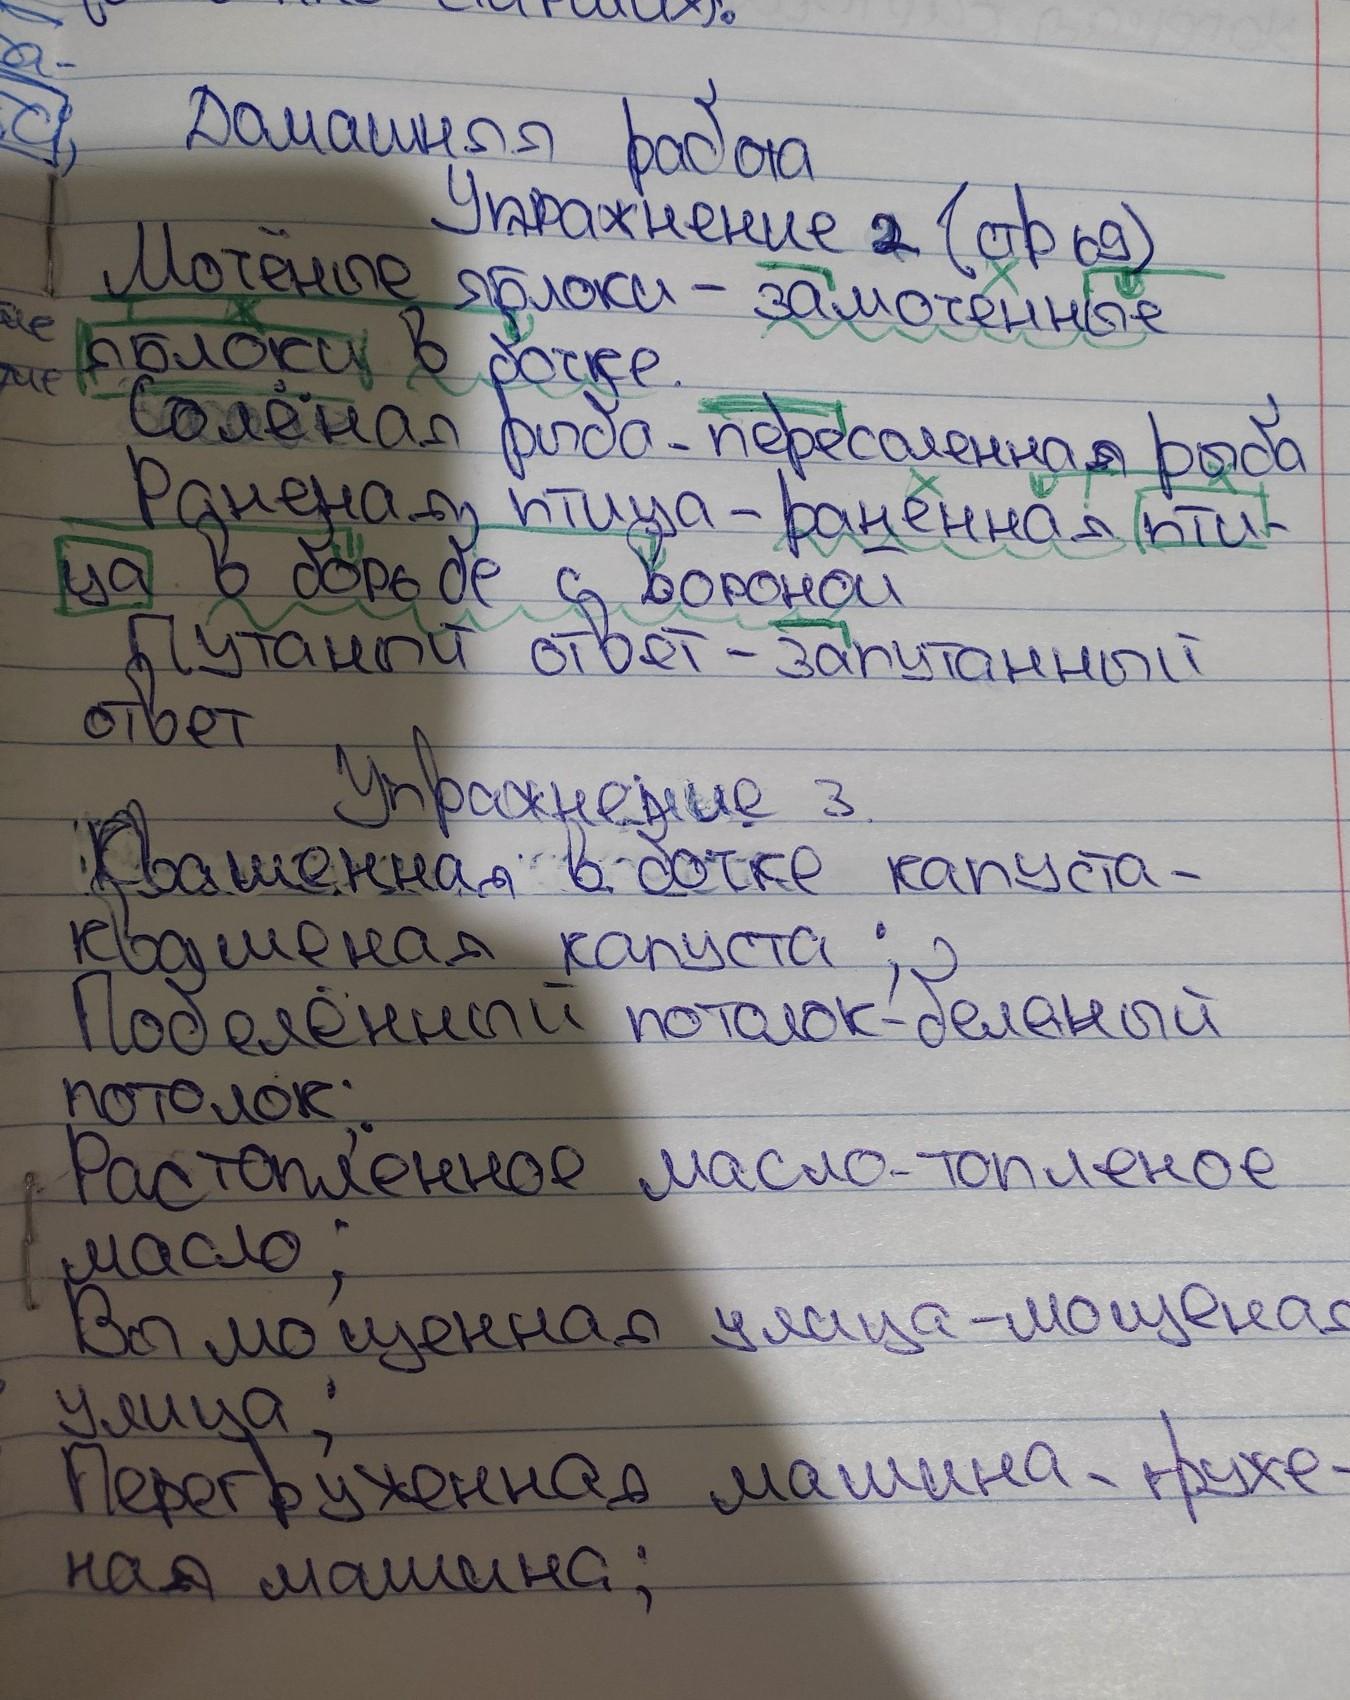 Домашняя работа
Упражнение 2 (стр 69)
Мочёные яблоки - замоченные
яблоки в бочке.
Солёная рыба - пересоленная рыба
Раненая птица - раненная пти-
ца в борьбе с вороной
Путаный ответ - запутанный
ответ
Упражнение 3.
Квашенная в бочке капуста -
квашеная капуста;
Побелённый потолок - беленый
потолок;
Растопленное масло - топленое
масло;
Вымощенная улица - мощеная
улица;
Перегруженная машина - груже-
ная машина;